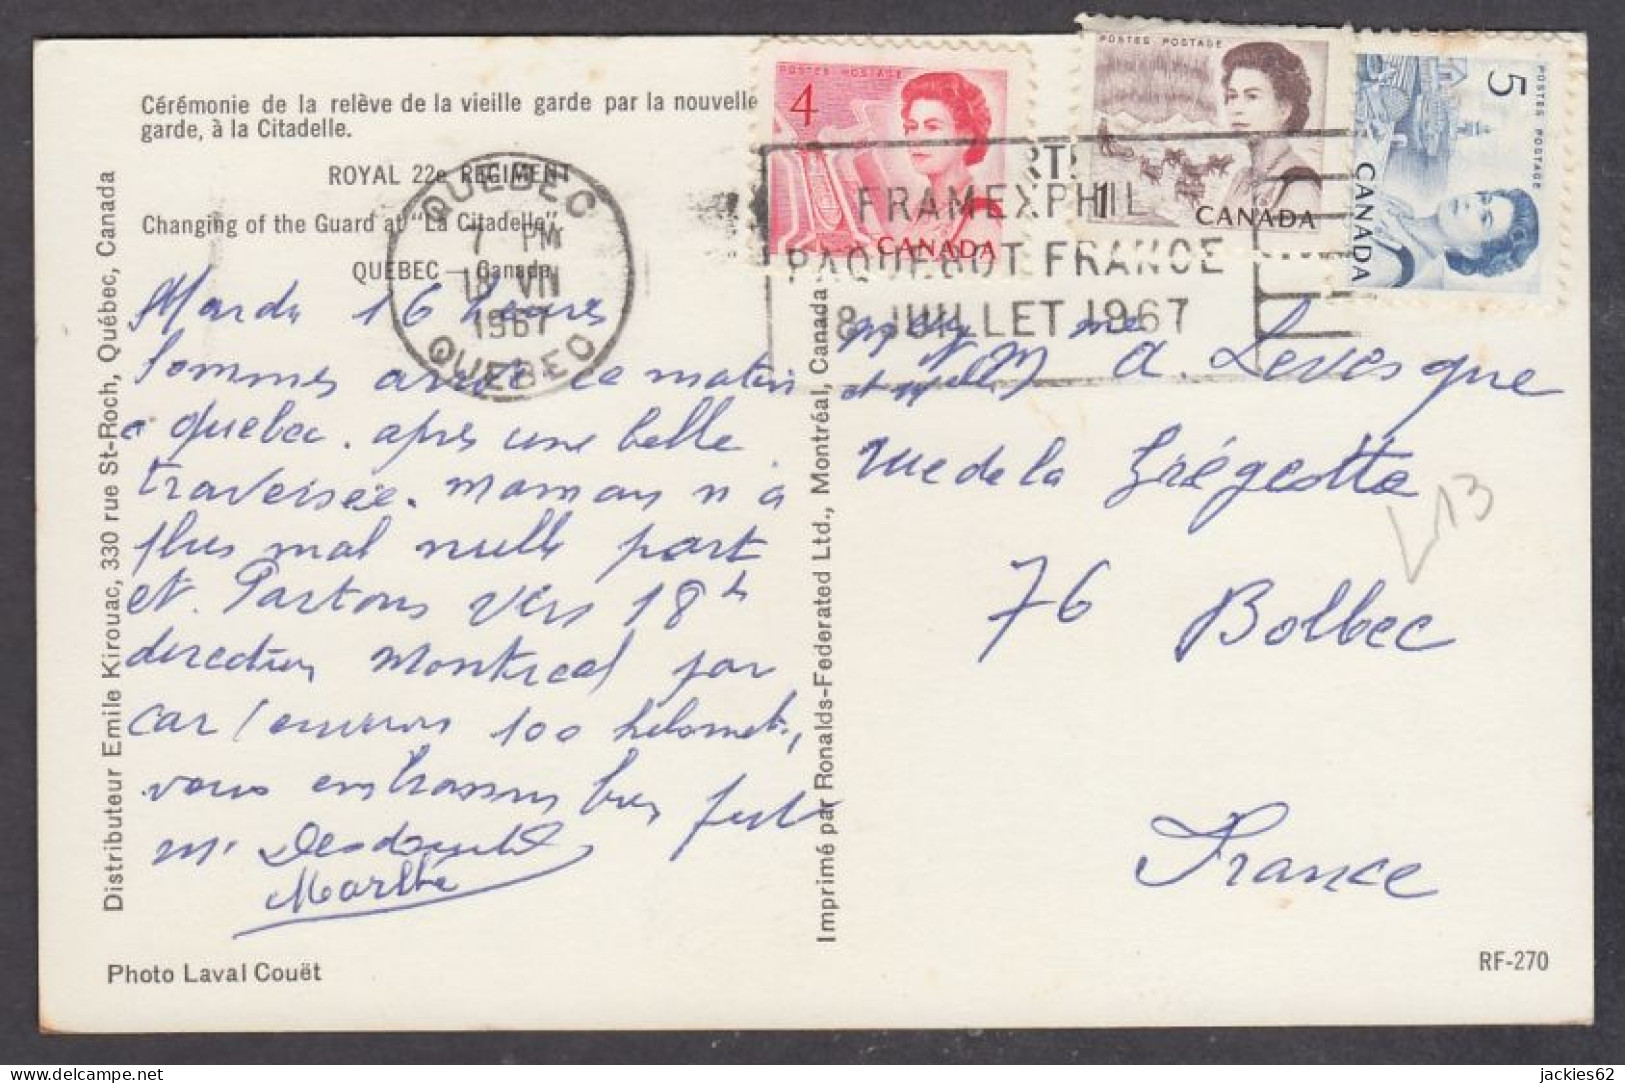 Cérémonie de la relève de la vieille garde par la nouvelle
garde, à la Citadelle.
ROYAL 22e REGIMENT
Changing of the Guard at "La Citadelle"
QUEBEC — Canada
QUEBEC
7 PM
18 VII
1967
QUEBEC
POSTES POSTAGE
4
CANADA
POSTES POSTAGE
1
CANADA
5
POSTES POSTAGE
CANADA
FRAMEXPHIL
PAQUEBOT FRANCE
8 JUILLET 1967
Mardi 16 heures
Sommes arrivé ce matin
a Quebec. après une belle
traversée. Maman n'a
plus mal nulle part
et. Partons vers 18h
direction Montreal par
car (environ 100 kilomet.,
vous embrassons bien fort
Marthe
A. Levesque
rue de la
76 Bolbec
France
13
Distributeur Emile Kirouac, 330 rue St-Roch, Québec, Canada
Imprimé par Ronalds-Federated Ltd., Montréal, Canada
Photo Laval Couët
RF-270
jackies62